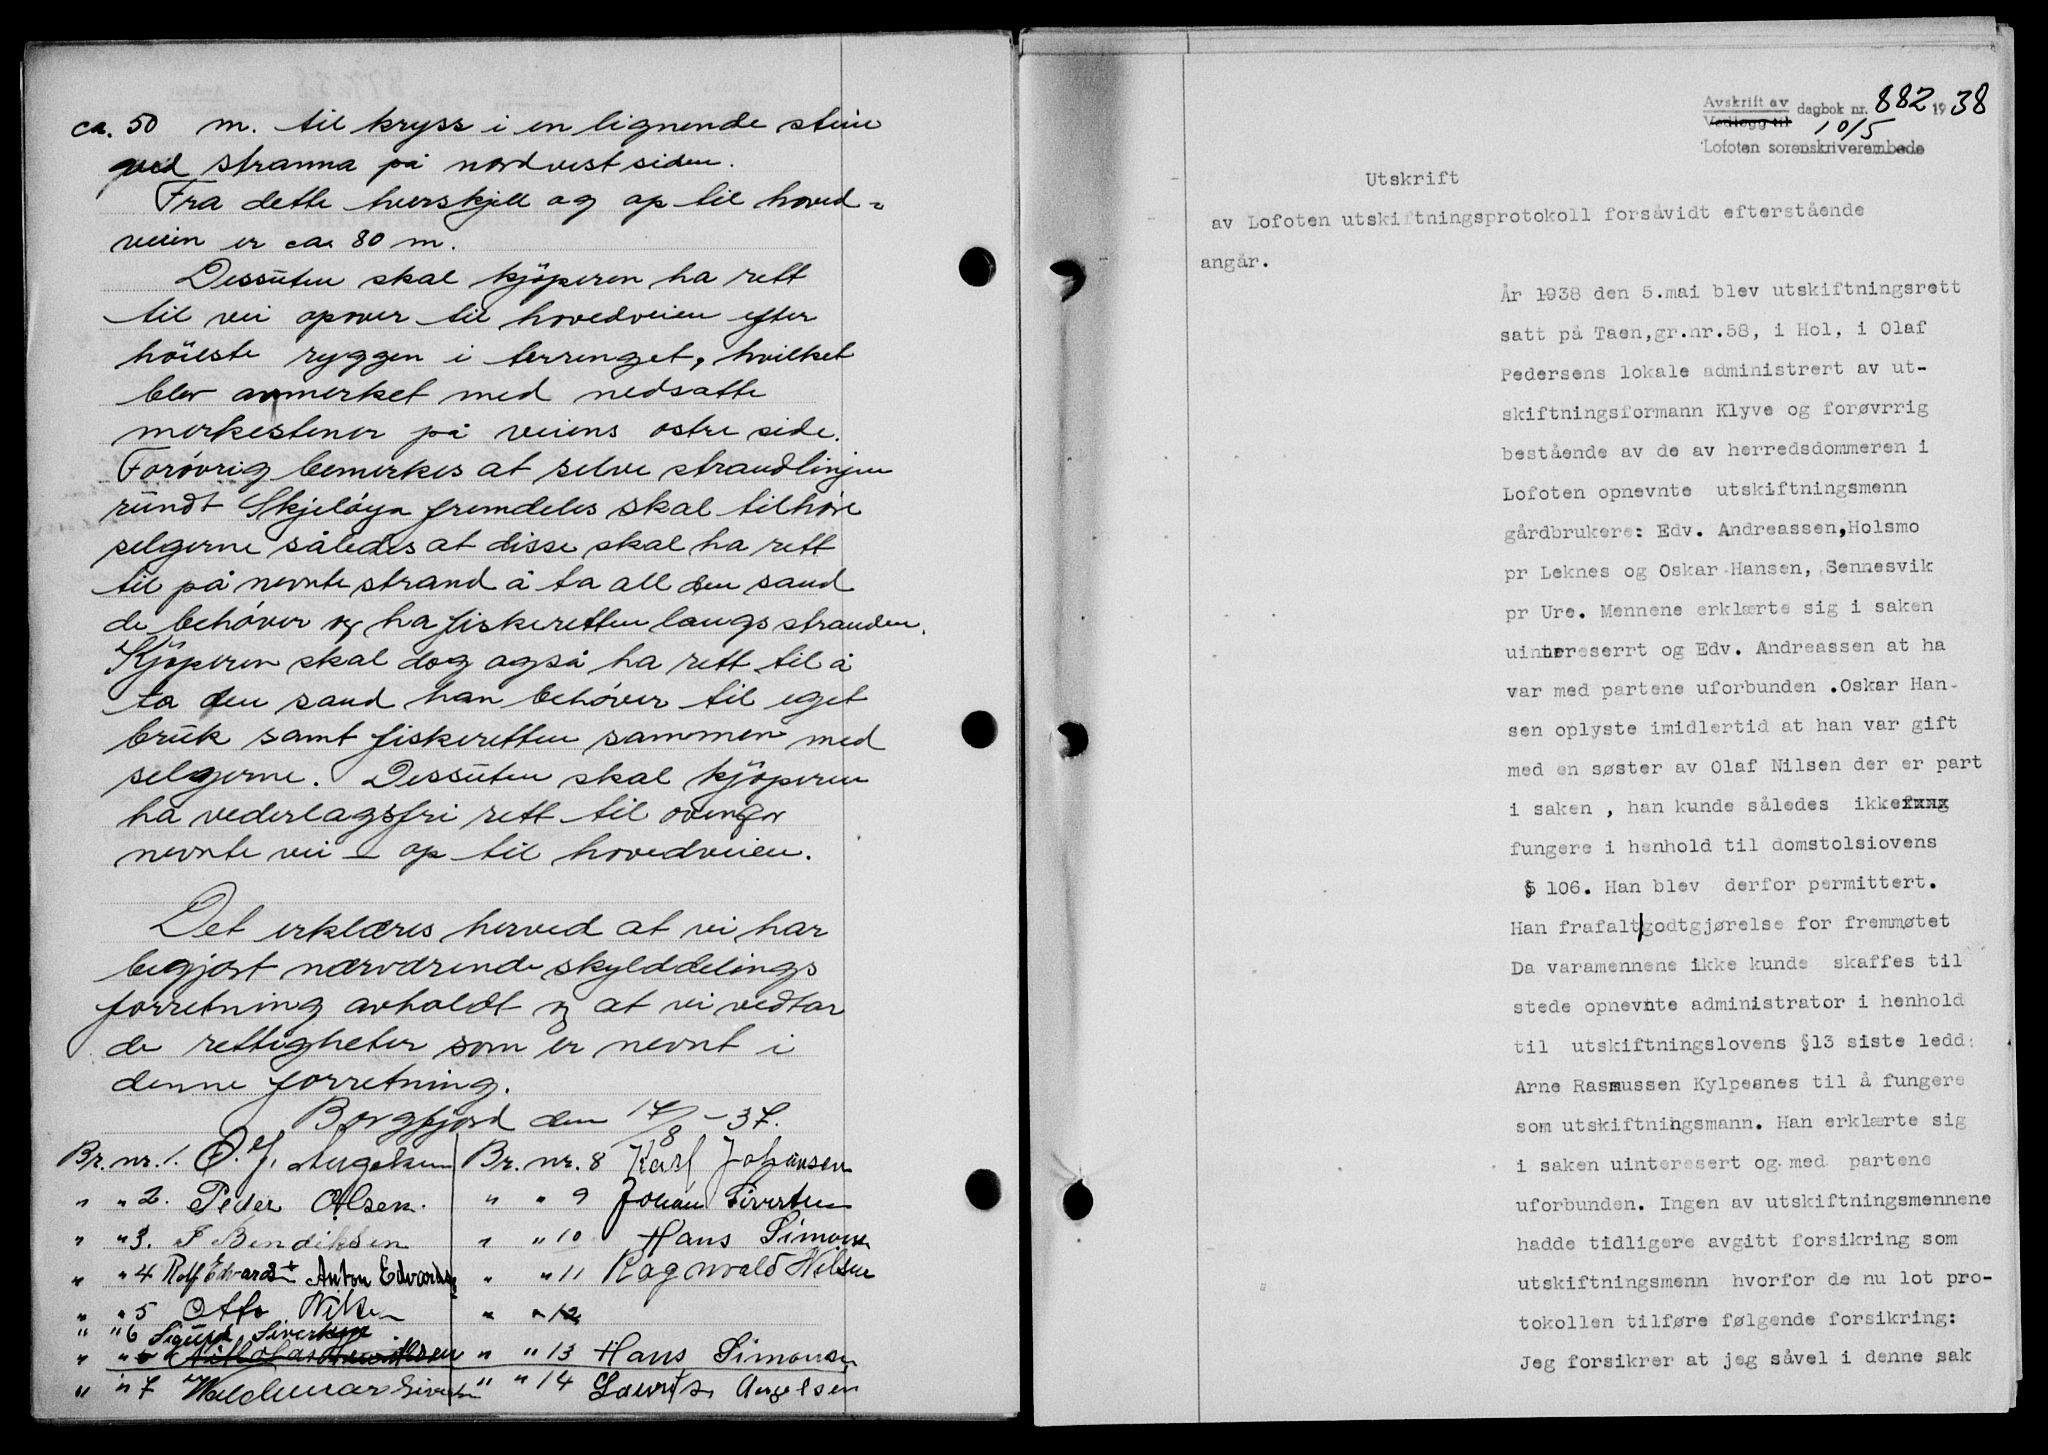 ca. 50 m. til kryss i en lignende stein
ved stranna på nordvestsiden.
Fra dette hverskjell og op til hoved-
veien er ca 80 m.
Dessuten skal kjöperen ha rett
til vei opover til hovedveien efter
höieste ryggen i terrenget, hvilket
blev anmerket med nedsatte
merkestener på veiens ostre side.
Forövrig bemerkes at selve strandlinjen
rundt Skjelöya fremdeles skal tilhöre
selgerne således at disse skal ha rett
til på nevnte strand å ta all den sand
de behöver og ha fiskeretten langs stranden.
Kjöperen skal dog også ha rett til å
ta den sand han behöver til eget
bruk samt fiskeretten sammen med
selgerne. Dessuten skal kjöperen
ha vederlagsfri rett til ovenfor
nevnte vei - op til hovedveien.
Det erklæres herved at vi har
begjært nærværende skylddelings
forretning avholdt og at vi vedtar
de rettigheter som er nevnt i
denne forretning.
Borgfjord den 17/8 - 37.
Br. nr. 1. O. J. Angelsen Br. nr. 8 Karl Johansen
" " 2. Peder Olsen. " " 9 Johan Sivertsen
" " 3. Bendiksen " " 10 Hans Simonsen
" " 4 Rolf Edvards + Anton Edvards " " 11 Ragnvald Nilsen
" " 5 Otto Nilsen " " 12
" " 6 Sigurd Sivertsen
" " " " 13 Hans Simonsen
" " 7 Waldemar Sivertsen " " 14 Laurits Angelsen
Avskrift av
Vedlegg til dagbok nr. 882 1938
10/5
Lofoten sorenskriverembede
Utskrift
av Lofoten utskiftningsprotokoll forsåvidt efterstående
angår.
År 1938 den 5.mai blev utskiftningsrett
satt på Taen,gr.nr.58, i Hol, i Olaf
Pedersens lokale administrert av ut-
skiftningsformann Klyve og forøvrrig
bestående av de av herredsdommeren i
Lofoten opnevnte utskiftningsmenn
gårdbrukere: Edv. Andreassen,Holsmo
pr Leknes og Oskar Hansen, Sennesvik
pr Ure. Mennene erklærte sig i saken
uintereserrt og Edv. Andreassen at ha
var med partene uforbunden .Oskar Han-
sen oplyste imidlertid at han var gift
med en søster av Olaf Nilsen der er part
i saken , han kunde således ikkefung
fungere i henhold til domstolsiovens
§ 106. Han blev derfor permittert.
Han frafalt/godtgjørelse for fremmøtet
Da varamennene ikke kunde skaffes til
stede opnevnte administrator i henhold
til utskiftningslovens §13 siste ledd:
Arne Rasmussen Kylpesnes til å fungere
som utskiftningsmann. Han erklærte sig
i saken uinteresert og med partene
uforbunden. Ingen av utskiftningsmennene
hadde tidligere avgitt forsikring som
utskiftningsmenn hvorfor de nu lot pro-
tokollen tilføre følgende forsikring:
Jeg forsikrer at jeg såvel i denne sak